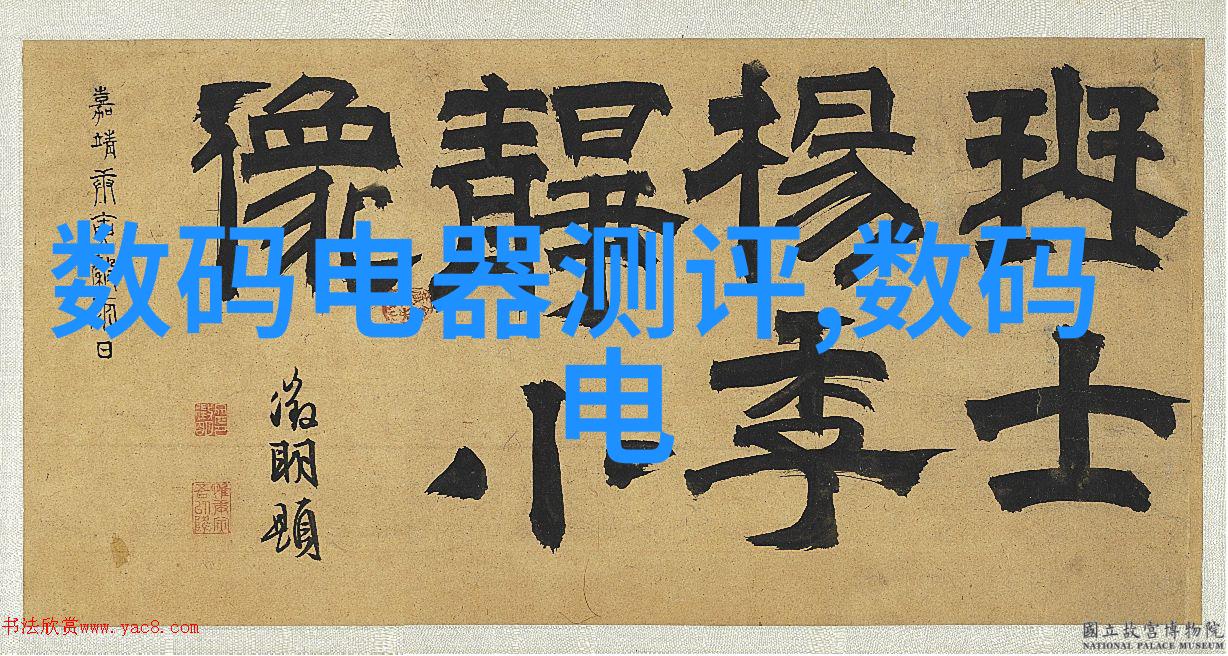 数码电器测评,数码
电
士
楊季
靜小
像
徵明題
嘉靖庚寅 日
书法欣赏www.yac8.com
國立故宮博物院
NATIONAL PALACE MUSEUM